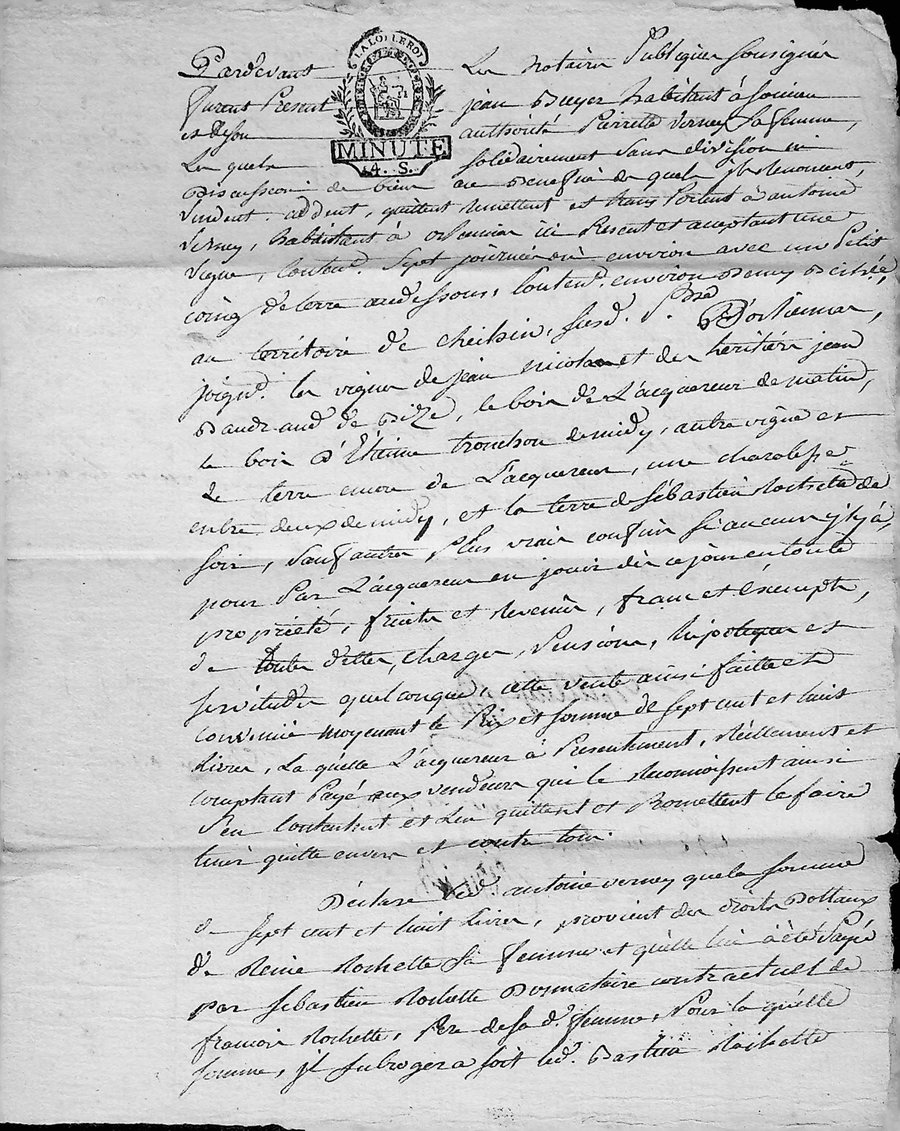 LA LOI LE ROI
MINUTE
4. S.
Pardevant Les Notaires Publiques Sousignés
furent Presents jean Buyer habitant à
et de son authorité Pierrette Verney Sa femme,
Lesquels solidairement sans division ni
Discussion de biens au Benefice de quel jls Renoncent,
Vendent, cedent, quittent Remettent et Trans Portent à antoine
Verney, habitant à ici Present et aceptant une
Vigne, Conten.t Sept journées ou environ avec un Petit
coing de terre audessous, Conten.t environ Demy Bicherée,
au territoire de susd. P.sse D'
joign.t les vignes de jean Nicolas et des heritiers jean
Baudrand de Bize, le bois de L'acquereur de matin,
le bois D'Etienne tronchon de midy, autre vigne et
Le terre encore de L'acquereur, une
entre deux de midy, et la terre de Sébastien Rochette de
soir, Sauf autres Plus vrais confins Si aucuns jl y à,
pour Par L'acquereur en jouir dès ce jour en toute
propriété, fruits et Revenus, franc et exempte,
de toutes dettes, charges, Pensions, hipoteques et
servitudes quelconques, cette vente ainsi faitte et
convenüe moyenant le Prix et somme de sept cent et huit
Livres, La quelle L'acquereur à Presentement, Réellement et
comptant Payé aux vendeurs qui le Reconnoissent ainsi
S'en Contentent et L'en quittent et Promettent le faire
tenir quitte envers et contre tous.
Déclare led. antoine verney que la somme
de sept cent et huit Livres, provient des droits Dottaux
de Reine Rochette Sa femme et qu'elle lui à été Payée
par Sébastien Rochette Donnataire contractuel de
francois Rochette, Pere de sa d. femme, Pour la quelle
somme, jl Subrogera soit led. Bastien Rochette